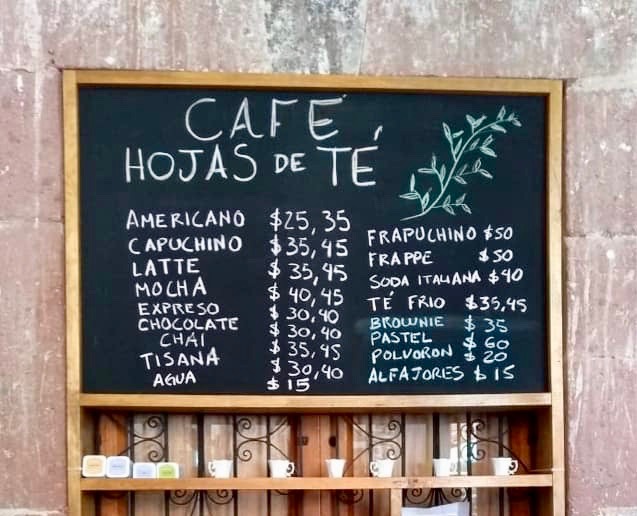 CAFÉ
HOJAS DE TÉ
AMERICANO $25, 35
CAPUCHINO $35, 45
LATTE $35, 45
MOCHA $40, 45
EXPRESO $30, 40
CHOCOLATE $30, 40
CHAI $35, 45
TISANA $30, 40
AGUA $15
FRAPUCHINO $50
FRAPPE $50
SODA ITALIANA $40
TÉ FRIO $35, 45
BROWNIE $35
PASTEL $60
POLVORON $20
ALFAJORES $15